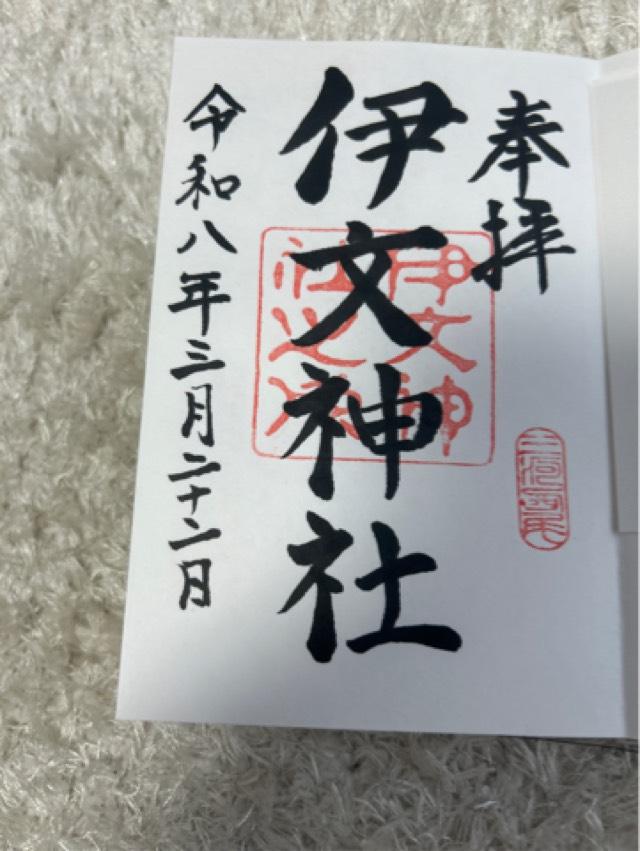 奉拝
伊文神社
伊文神社之印
令和八年三月二十二日